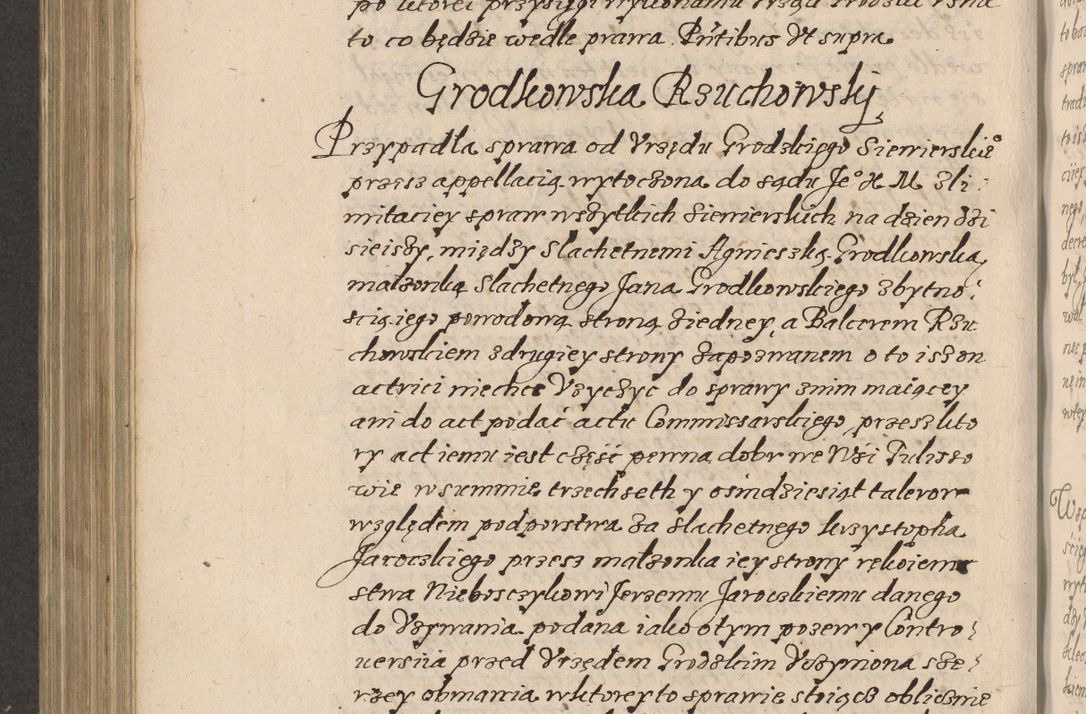 to co będzie wedle prawa Pntibus Vt supra
Grodkowska Rzuchowskj
Przypadła sprawa od Vrzędu Grodzkiego Siewierskie°
przesz appellacią wytoczona do sądu Je° X M z li:
mitaciey spraw wszytkich Siewierskich na dzien dzi
sieiszy, między Slachetnemi Agnieszką Grodkowską
małzonką Slachetnego Jana Grodkowskiego zbytno:
scią iego powodową stroną ziedney, a Balcerem Rzu
chowskiem zdrugiey strony zapozwanem o to iszon
actrici niechce Vzyczyc do sprawy znim maiącey
ani do act podać actu Commissarskiego, przeszkto
ry act iemu iest część pewna dobr we Wsi Tuliszo
wie w summie trzechseth y osmdziesiąt talerow
względem podporstwa za slachetnego krzystopha
Jaroczkiego przesz małzonka iey strony rękoiem
stwa Nieboszczykowi Jerzemu Jaroczkiemu danego
do Vzywania podana iako otym pozew y Contro:
uersiia przed Vrzędem Grodzkim Vczyniona sze:
rzey obmawia wktorey to sprawie stoiącz oblicznie